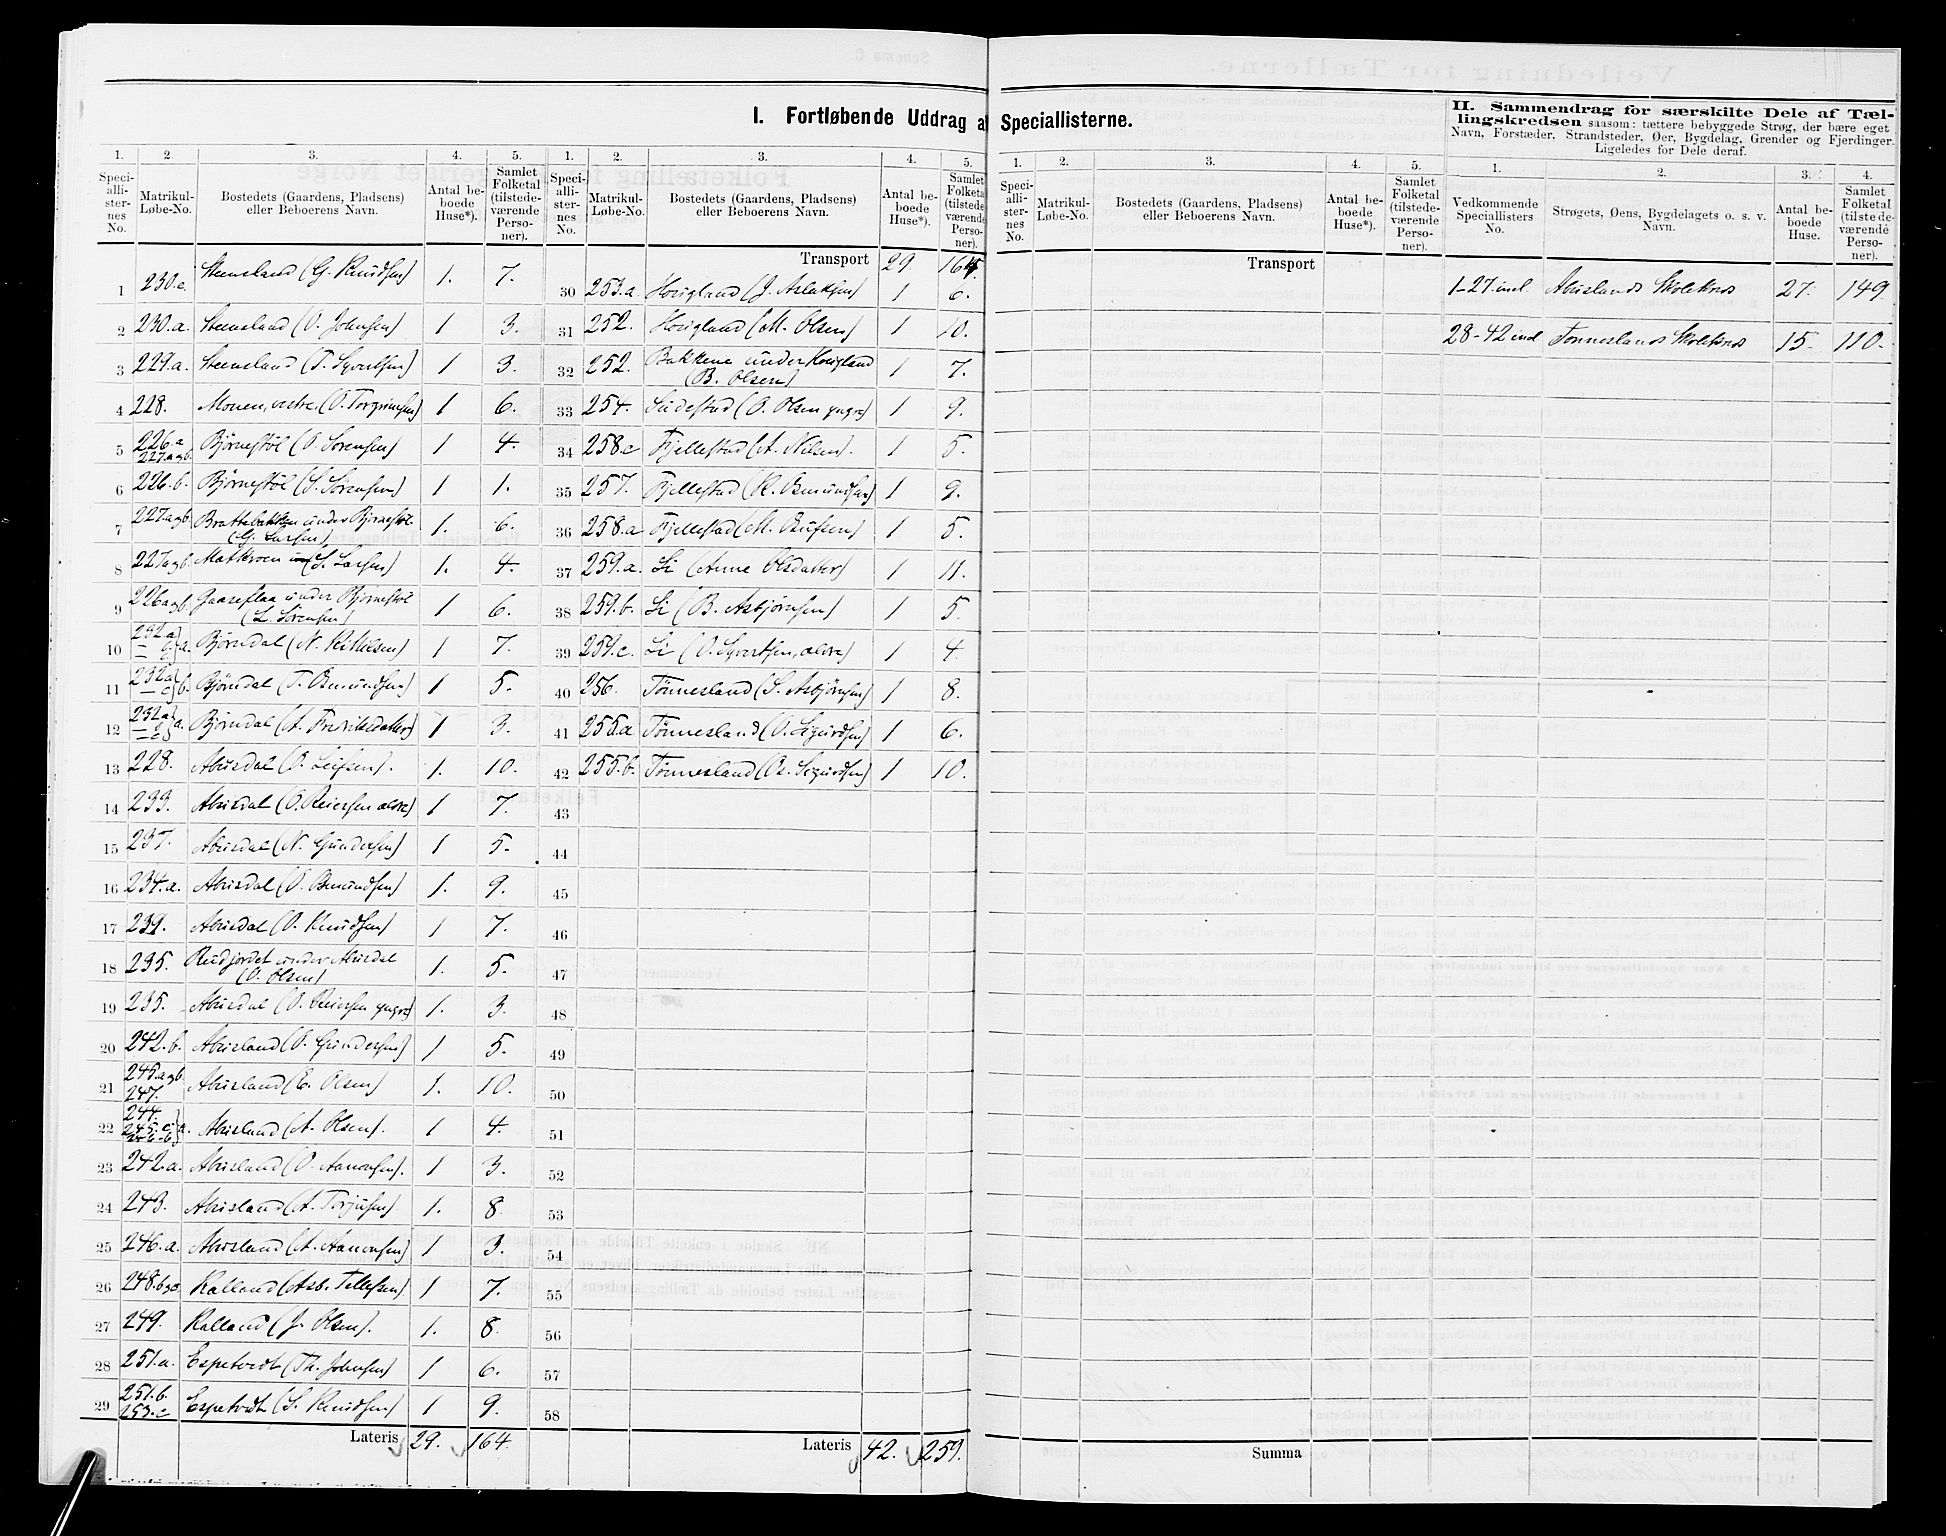 I. Fortløbende Uddrag af Speciallisterne.
II. Sammendrag for særskilte Dele af Tæl-
lingskredsen saasom: tættere bebyggede Strøg, der bære eget
Navn, Forstæder, Strandsteder, Øer, Bygdelag, Grender og Fjerdinger.
Ligeledes for Dele deraf.
1. 2. 3. 4. 5.
Speciallisternes No. Matrikul-Løbe-No. Bostedets (Gaardens, Pladsens) eller Beboerens Navn. Antal beboede Huse*). Samlet Folketal (tilstedeværende Personer).
1 230.c Steensland (G. Knudsen) 1. 7.
2 230.a. Steensland (O. Johnsen) 1 3.
3 229.a. Steensland (T. Syvertsen) 1 3.
4 228. Monen, vestre. (O. Torgrimsen) 1 6.
5 226.a 227.a og b. Bjørnestøl (O. Sørensen) 1 4.
6 226.b. Bjørnestøl (S. Sørensen) 1 1.
7 227 a og b. Brattebakken under Bjørnestøl (G. Larsen) 1. 6.
8 227 a og b. (S. Larsen) 1. 4.
9 226 a og b. Gaaseflaa under Bjørnestøl (L. Sørensen) 1 6.
10 232.a – c } a. Bjørndal (N. Kittilsen) 1 7.
11 232.a – c } b. Bjørndal (T. Osmundsen) 1 5.
12 232.a – c } a. Bjørndal (A. Fredriksdatter) 1 3.
13 228. Abusdal (O. Leifsen). 1. 10.
14 233. Abusdal (O. Reiersen ældre) 1 7.
15 237. Abusdal (N. Gundersen) 1 5.
16 234.a. Abusdal (O. Osmundsen) 1. 9.
17 239. Abusdal (O. Knudsen) 1 7.
18 235. Rudjordet under Abusdal (O. Olsen) 1. 5.
19 235. Abusdal (O. Reiersen yngre) 1. 3.
20 242.b. Abusland (O. Gundersen) 1 5.
21 245.a og b. 247. Abusland (E. Olsen) 1. 10.
22 244. 245.c } a. Abusland (A. Olsen). 1 4.
23 242.a. Abusland (O. Aanonsen). 1 3.
24 243. Abusland (A. Torjusen) 1. 8
25 246.a. Abusland (A. Aanonsen) 1 3.
26 248.b og a Kalland (Asb. Tellefsen) 1 7.
27 249. Kalland (J. Olsen). 1. 8
28 251.a. Espetvedt (Th. Johnsen) 1 6.
29 251.b. 253.c Espetvedt (S. Knudsen) 1 9.
Lateris 29. 164.
1. 2. 3. 4. 5.
Speciallisternes No. Matrikul-Løbe-No. Bostedets (Gaardens, Pladsens) eller Beboerens Navn. Antal beboede Huse*). Samlet Folketal (tilstedeværende Personer).
Transport 29 164.
30 253.a. Hovigland (J. Aslaksen) 1 6.
31 252. Hovigland (M. Olsen) 1 10.
32 252. Bakkene under Hovigland (B. Olsen) 1 7.
33 254. (O. Olsen yngre) 1 9.
34 258.c Fjellestad (A. Nilsen). 1 5.
35 257. Fjellestad (K. Osmundsen) 1 9.
36 258.a Fjellestad (M. ) 1 5.
37 259.a. Li (Anne Olsdatter) 1 11.
38 259.b. Li (B. Asbjørnsen) 1 5.
39 259.c. Li (O. Syvertsen, ældre) 1 4.
40 256. Tønnesland (S. Asbjørnsen) 1 8.
41 255.a Tønnesland (O. Sigurdsen) 1 6.
42 255.b. Tønnesland (Os. Sigurdsen) 1 10.
43
44
45
46
47
48
49
50
51
52
53
54
55
56
57
58
Lateris 42. 259.
1. 2. 3. 4. 5.
Speciallisternes No. Matrikul-Løbe-No. Bostedets (Gaardens, Pladsens) eller Beboerens Navn. Antal beboede Huse*). Samlet Folketal (tilstedeværende Personer).
Transport
Summa
1. 2. 3. 4.
Vedkommende Speciallisters No. Strøgets, Øens, Bygdelagets o. s. v. Navn. Antal beboede Huse. Samlet Folketal (tilstedeværende Personer).
1-27 incl. Abuslands Skolekreds 27. 149.
28-42 incl Tønneslands Skolekreds 15. 110.